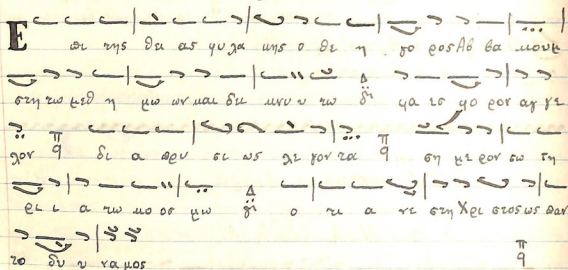 Ε πι της θει ας φυ λα κης ο θε η γο ρος Αβ βα κουμ
στη τω μεθ η μω ων και δει κνυ υ τω φα εσ φο ρον αγ γε
λον δι α πρυ σι ως λε γον τα ση με ρον σω τη
ρι ι α τω κο οσ μω ο τι α νε στη Χρι στος ως παν
το δυ υ να μος